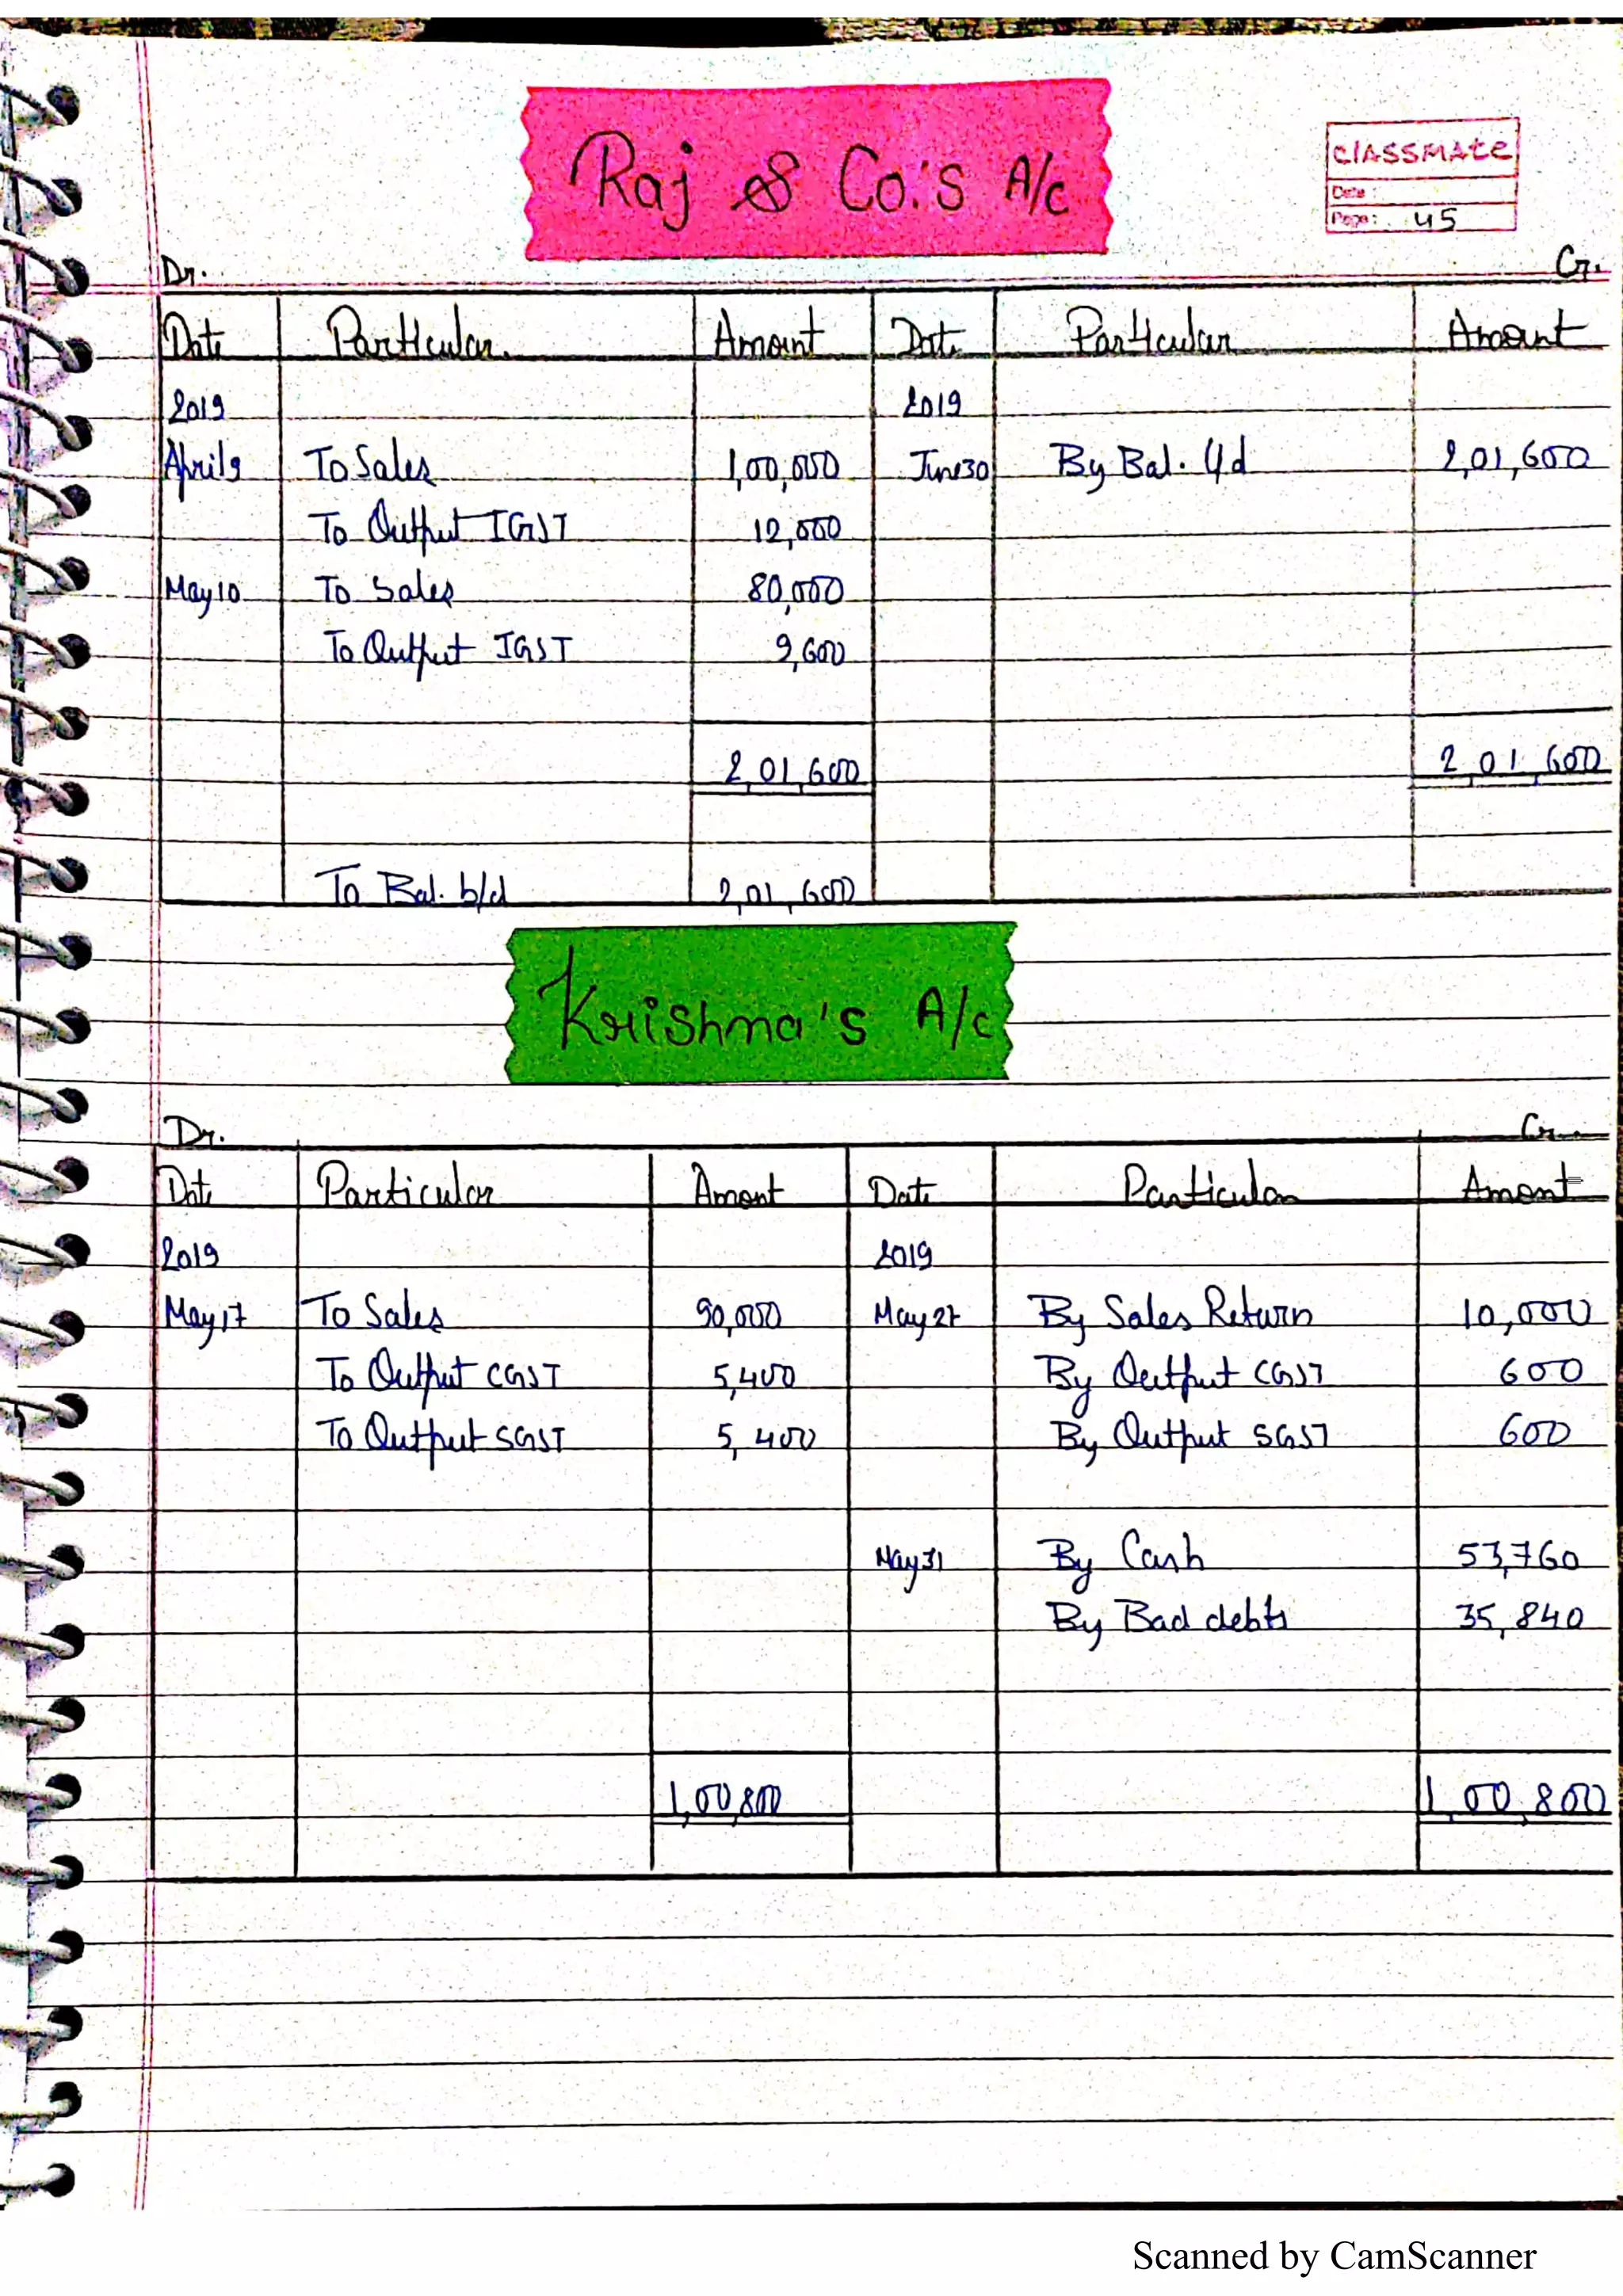 Raj & Co.'s A/c
CLASSMATE
Date :
Page: 45
Dr. Cr.
Date Particular Amount Date Particular Amount
2019 2019
April 9 To Sales 1,00,000 June30 By Bal. c/d 2,01,600
To Output IGST 12,000
May10 To Sales 80,000
To Output IGST 9,600
2,01,600 2,01,600
To Bal. b/d 2,01,600
Krishna's A/c
Dr. Cr.
Date Particular Amont Date Particular Amont
2019 2019
May17 To Sales 90,000 May 27 By Sales Return 10,000
To Output CGST 5,400 By Output CGST 600
To Output SGST 5,400 By Output SGST 600
May 31 By Cash 53,760
By Bad debts 35,840
1,00,800 1,00,800
Scanned by CamScanner